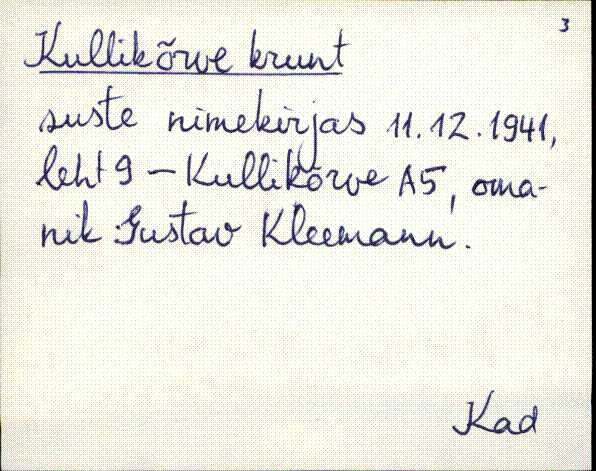 3
Kullikõrve krunt
suste nimekirjas 11.12.1941,
leht 9 – Kullikõrve A5, oma-
nik Gustav Kleemann.
Kad